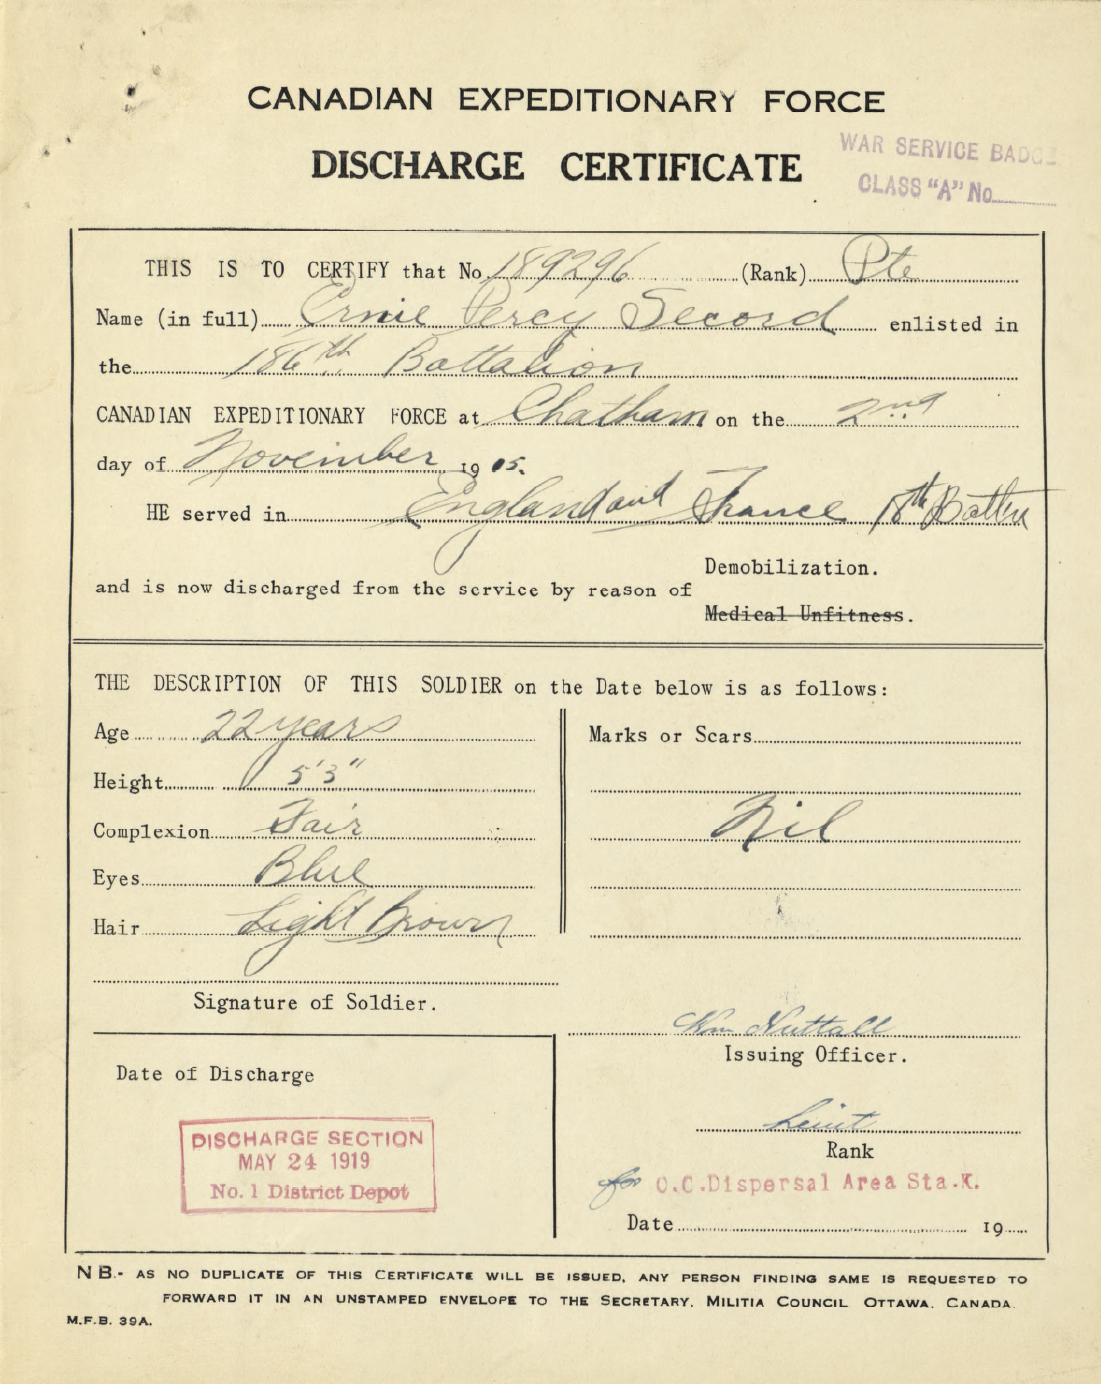 CANADIAN EXPEDITIONARY FORCE
DISCHARGE CERTIFICATE
WAR SERVICE BADGE
CLASS "A" No
THIS IS TO CERTIFY that No. 189296 (Rank) Pte
Name (in full) Ernie Percy Secord enlisted in
the 186th Battalion
CANADIAN EXPEDITIONARY FORCE at Chatham on the 2nd
day of November 19 15.
HE served in England and France 18th Battn
Demobilization.
and is now discharged from the service by reason of
Medical Unfitness.
THE DESCRIPTION OF THIS SOLDIER on the Date below is as follows:
Age 22 years
Height 5'3"
Complexion Fair
Eyes Blue
Hair Light Brown
Marks or Scars
Nil
Signature of Soldier.
Wm Nuttall
Issuing Officer.
Date of Discharge
DISCHARGE SECTION
MAY 24 1919
No. 1 District Depot
Lieut
Rank
for O.C. Dispersal Area Sta. K.
Date 19
NB.- AS NO DUPLICATE OF THIS CERTIFICATE WILL BE ISSUED, ANY PERSON FINDING SAME IS REQUESTED TO
FORWARD IT IN AN UNSTAMPED ENVELOPE TO THE SECRETARY, MILITIA COUNCIL OTTAWA, CANADA.
M.F.B. 39A.